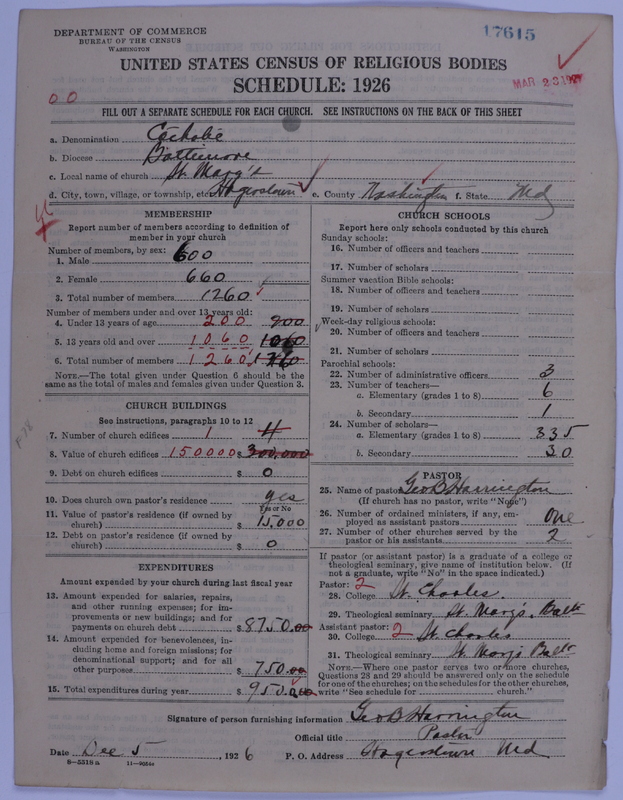 DEPARTMENT OF COMMERCE
BUREAU OF THE CENSUS
WASHINGTON
17615
UNITED STATES CENSUS OF RELIGIOUS BODIES
SCHEDULE: 1926
MAR 23 1927
0 0
FILL OUT A SEPARATE SCHEDULE FOR EACH CHURCH. SEE INSTRUCTIONS ON THE BACK OF THIS SHEET
a. Denomination Catholic
b. Diocese Baltimore
c. Local name of church St. Mary's
d. City, town, village, or township, etc. Hagerstown e. County Washington f. State Md
MEMBERSHIP
Report number of members according to definition of
member in your church
Number of members, by sex:
1. Male 600
2. Female 660
3. Total number of members 1260
Number of members under and over 13 years old:
4. Under 13 years of age 200 200
5. 13 years old and over 1060 1060
6. Total number of members 1260
NOTE.—The total given under Question 6 should be the
same as the total of males and females given under Question 3.
CHURCH BUILDINGS
See instructions, paragraphs 10 to 12
7. Number of church edifices 1 4
8. Value of church edifices 150000 $ 300,000
9. Debt on church edifices $ 0
10. Does church own pastor's residence yes
Yes or No
11. Value of pastor's residence (if owned by
church) $ 15,000
12. Debt on pastor's residence (if owned by
church) $ 0
EXPENDITURES
Amount expended by your church during last fiscal year
13. Amount expended for salaries, repairs,
and other running expenses; for im-
provements or new buildings; and for
payments on church debt $ 8750.00
14. Amount expended for benevolences, in-
cluding home and foreign missions; for
denominational support; and for all
other purposes $ 750.00
15. Total expenditures during year $ 950
CHURCH SCHOOLS
Report here only schools conducted by this church
Sunday schools:
16. Number of officers and teachers
17. Number of scholars
Summer vacation Bible schools:
18. Number of officers and teachers
19. Number of scholars
Week-day religious schools:
20. Number of officers and teachers
21. Number of scholars
Parochial schools:
22. Number of administrative officers 3
23. Number of teachers—
a. Elementary (grades 1 to 8) 6
b. Secondary 1
24. Number of scholars—
a. Elementary (grades 1 to 8) 335
b. Secondary 30
PASTOR
25. Name of pastor Geo B Harrington
(If church has no pastor, write "None")
26. Number of ordained ministers, if any, em-
ployed as assistant pastors One
27. Number of other churches served by the
pastor or his assistants 2
If pastor (or assistant pastor) is a graduate of a college or
theological seminary, give name of institution below. (If
not a graduate, write "No" in the space indicated.)
Pastor: 2
28. College St. Charles.
29. Theological seminary St. Mary's. Balto
Assistant pastor: 2
30. College St. Charles
31. Theological seminary St. Mary's Balto
NOTE.—Where one pastor serves two or more churches,
Questions 28 and 29 should be answered only on the schedule
for one of the churches; on the schedules for the other churches,
write "See schedule for church."
Signature of person furnishing information Geo B Harrington
Official title Pastor
Date Dec 5, 1926 P. O. Address Hagerstown Md
8—5518 a